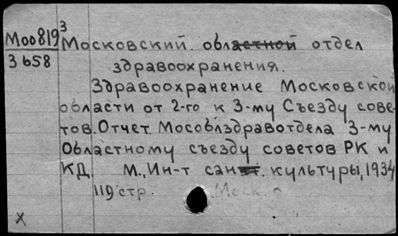 Моо819
3
3658
Московский областной отдел
здравоохранения.
Здравоохранение Московской
области от 2-го к 3-му Съезду сове-
тов. Отчет Мособлздравотдела 3-му
Областному съезду советов РК и
КД. М., Ин-т сан. культуры, 1934
119 стр.
х